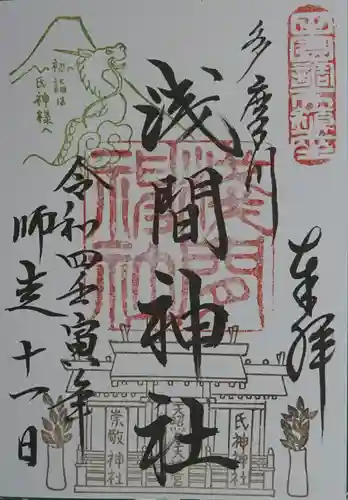 奉拝
多摩川
浅間神社
令和四壬寅年
師走十一日
初詣は
氏神様へ
浅間神社
崇敬神社
氏神神社